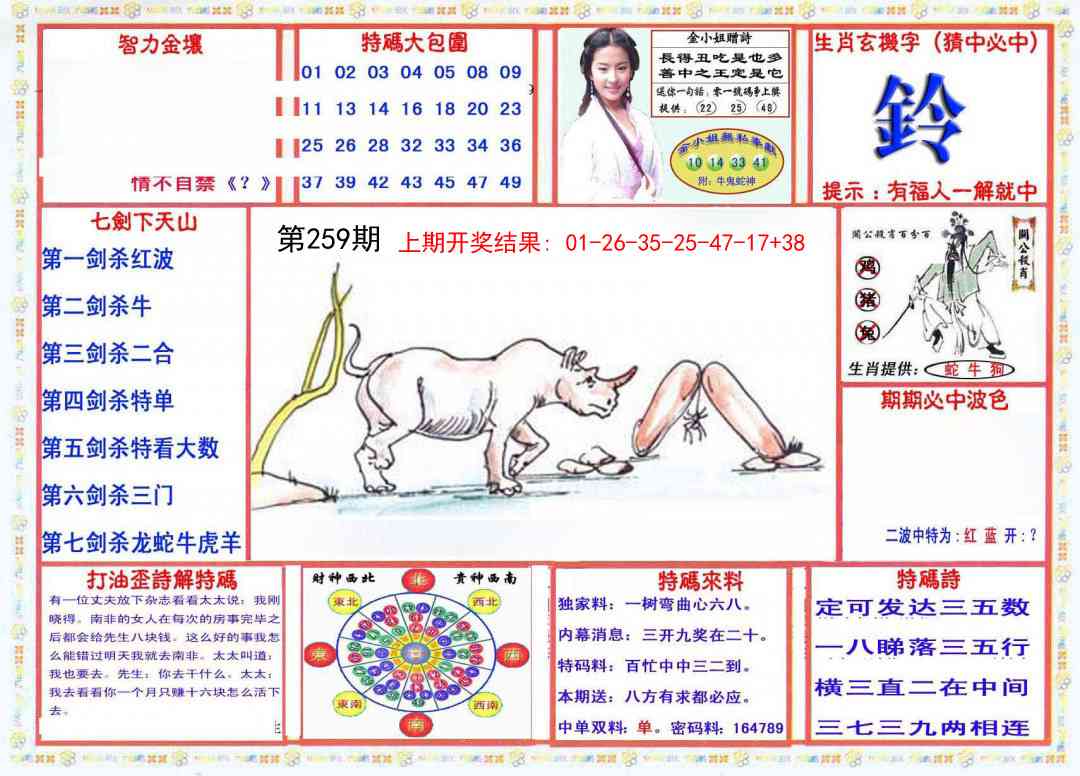 智力金壤
情不自禁《？》
特碼大包圍
01 02 03 04 05 08 09
11 13 14 16 18 20 23
25 26 28 32 33 34 36
37 39 42 43 45 47 49
金小姐贈詩
長得丑吃是也多
善中之王定是它
送你一句話：零一號碼争上獎
提供：22 25 48
金小姐無私奉獻
10 14 33 41
附：牛鬼蛇神
生肖玄機字（猜中必中）
鈴
提示：有福人一解就中
七劍下天山
第一剑杀红波
第二剑杀牛
第三剑杀二合
第四剑杀特单
第五剑杀特看大数
第六剑杀三门
第七剑杀龙蛇牛虎羊
第259期
上期开奖结果：01-26-35-25-47-17+38
關公殺肖百分百
關公殺肖
鸡
猪
兔
生肖提供：蛇 牛 狗
期期必中波色
二波中特为：红 蓝 开：？
打油歪詩解特碼
有一位丈夫放下杂志看看太太说：我刚
晓得。南非的女人在每次的房事完毕之
后都会给先生八块钱。这么好的事我怎
么能错过明天我就去南非。太太叫道：
我也要去。先生：你去干什么。太太：
我去看看你一个月只赚十六块怎么活下
去。
財神西北 貴神西南
北
東北 西北
東 西
東南 西南
南
特碼來料
独家料：一树弯曲心六八。
内幕消息：三开九奖在二十。
特码料：百忙中中三二到。
本期送：八方有求都必应。
中单双料：单。密码料：164789
特碼詩
定可发达三五数
一八睇落三五行
横三直二在中间
三七三九两相连